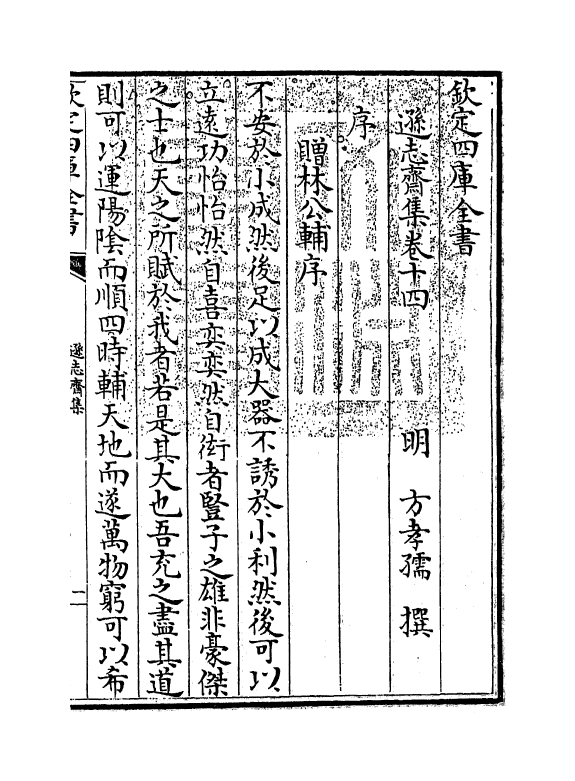 欽定四庫全書
遜志齋集卷十四
明 方孝孺 撰
序
贈林公輔序
不安於小成然後足以成大器不誘於小利然後可以
立遠功怡怡然自喜奕奕然自衒者豎子之雄非豪傑
之士也天之所賦於我者若是其大也吾充之盡其道
則可以運陽陰而順四時輔天地而遂萬物窮可以希
欽定四庫全書
遜志齋集